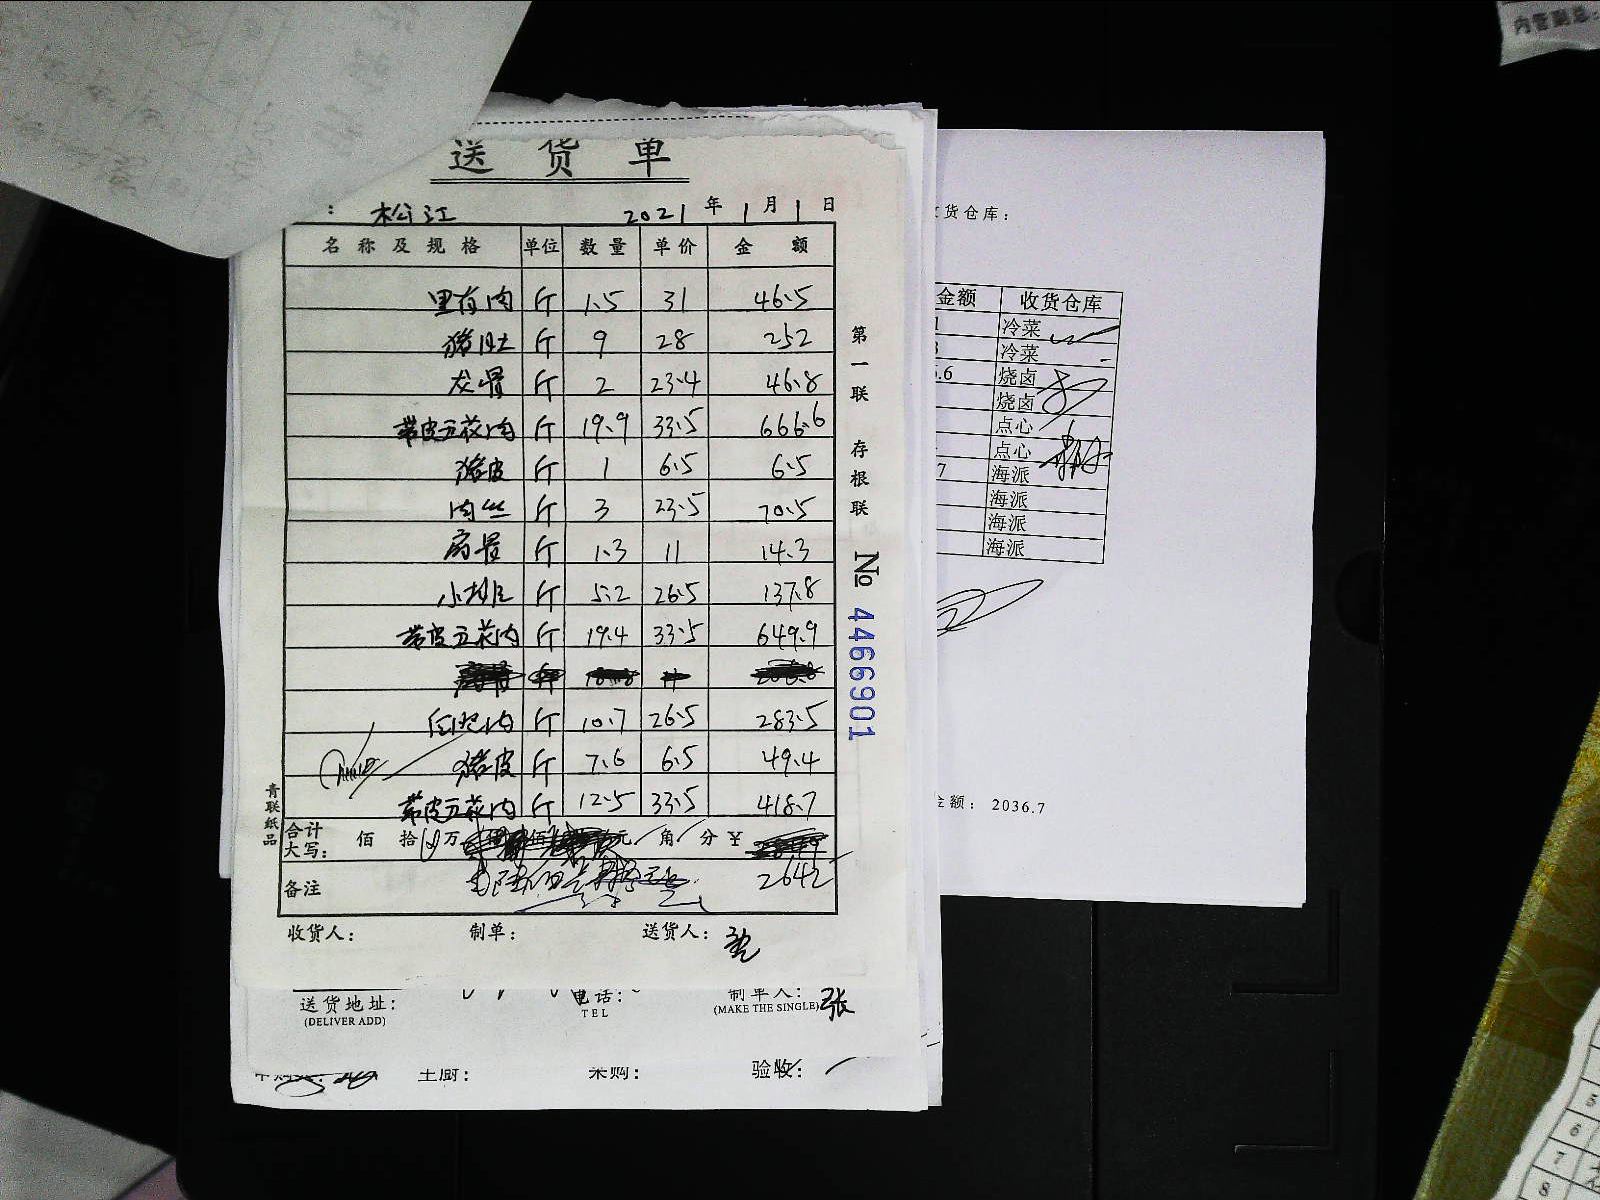 内管副总:
送 货 单
: 松江 2021 年 1 月 1 日
名 称 及 规 格 单位 数 量 单 价 金 额
里肉 斤 1.5 31 46.5
猪肚 斤 9 28 252
龙骨 斤 2 23.4 46.8
带皮五花肉 斤 19.9 33.5 666.6
猪皮 斤 1 6.5 6.5
肉丝 斤 3 23.5 70.5
扇骨 斤 1.3 11 14.3
小排 斤 5.2 26.5 137.8
带皮五花肉 斤 19.4 33.5 649.9
肉 斤 10.7 26.5 283.5
猪皮 斤 7.6 6.5 49.4
带皮五花肉 斤 12.5 33.5 418.7
合计
大写: 佰 拾 万 佰 元 角 分 ¥
备注 2642
收货人: 制单: 送货人:
第一联 存根联
№ 4466901
青联纸品
送货地址: 电话: 制单人: 张
(DELIVER ADD) TEL (MAKE THE SINGLE)
主厨: 采购: 验收:
收货仓库:
金额 收货仓库
1 冷菜
3 冷菜
.6 烧卤
烧卤
点心
点心
7 海派
海派
海派
海派
金额: 2036.7
5
6
7
8